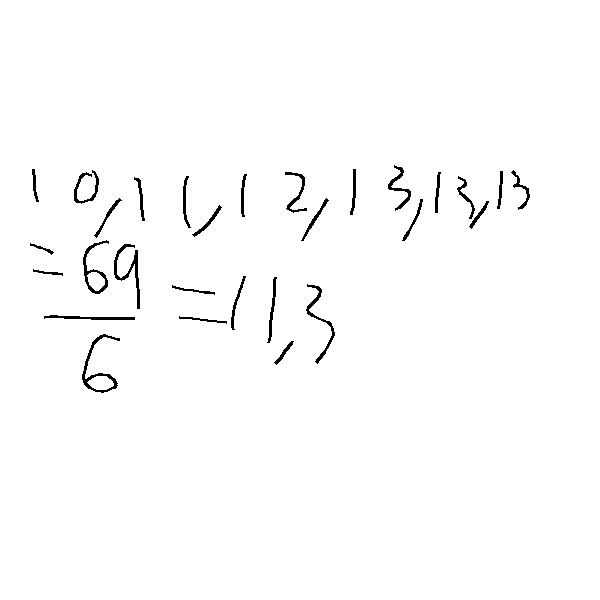 10,11,12,13,13,13
= 69/6 = 11,3